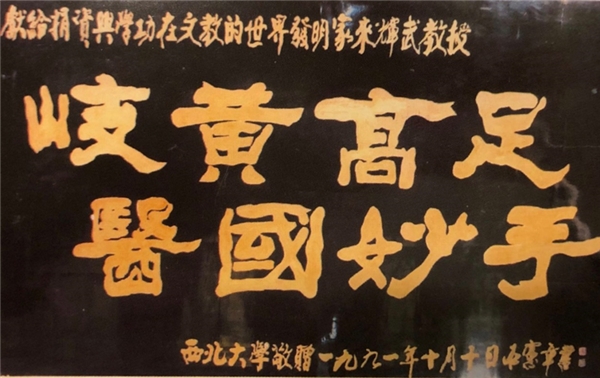 獻給捐資興學功在文教的世界發明家來輝武教授
岐黄髙足
醫國妙手
西北大學敬贈一九九一年十月十日石憲章書